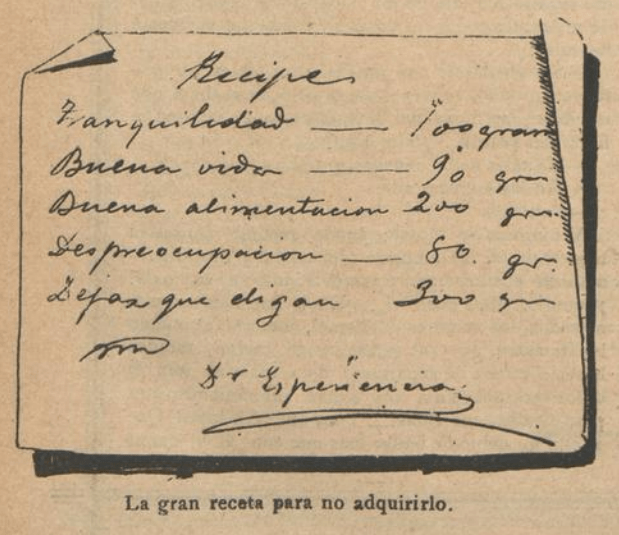 Recipe
Tranquilidad — 100 gram
Buena vida — 90 gm
Buena alimentacion 200 gr.
Despreocupacion — 80 gr.
Dejar que digan 300 gm
Dr Esperiencia
La gran receta para no adquirirlo.